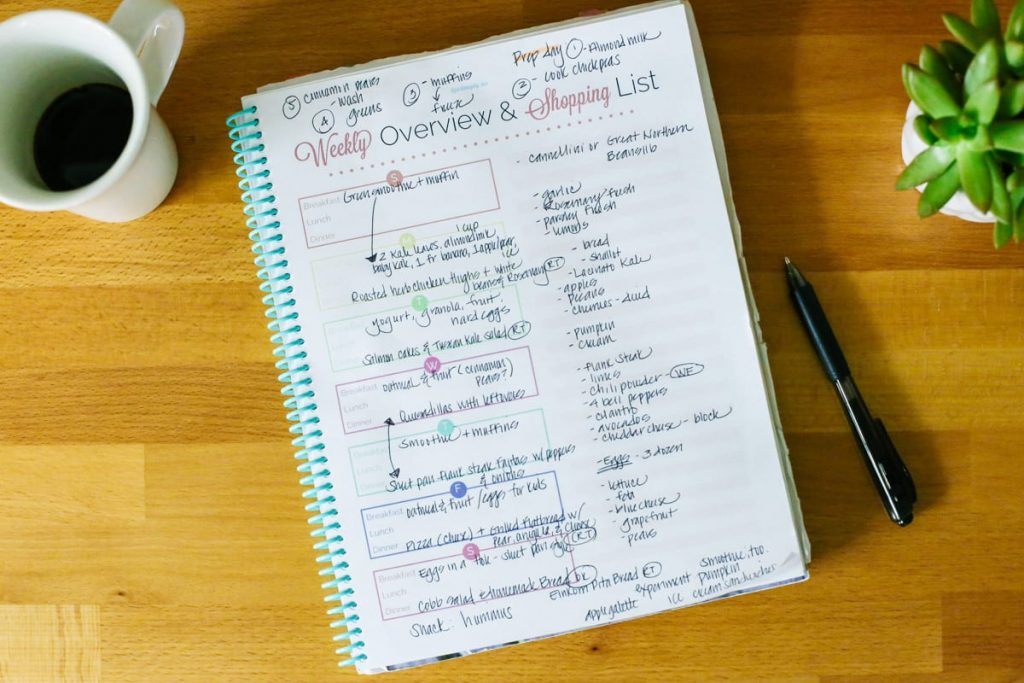 Prep day ① - Almond milk
② - cook chickpeas
③ - muffins
↓
freeze
④ - wash
greens
⑤ cinnamon pears
Weekly Overview & Shopping List
S
Breakfast Green smoothie + muffin
Lunch
Dinner
M
1 cup
2 kale leaves, almond milk
baby kale, 1 fr banana, 1 apple/pear,
ice
Roasted herb chicken thighs + white
beans & Rosemary RT
T
yogurt, granola, fruit,
hard eggs
Salmon cakes & Tuscan Kale salad RT
W
Breakfast oatmeal & fruit (cinnamon
pears?)
Lunch
Dinner Quesadillas with leftovers
T
Smoothie + muffins
Sheet pan Flank steak Fajitas w/ peppers
& onions
F
Breakfast oatmeal & fruit / eggs for kids
Lunch
Dinner Pizza (cheese) + Grilled Flatbread w/
pear, arugula, & cheese
RT
S
Breakfast Eggs in a hole - sheet pan style
Lunch
Dinner Cobb salad & homemade Bread
Snack: hummus
- cannellini or Great Northern
Beans 1lb
- garlic
- Rosemary fresh
- parsley fresh
- lemons
- bread
- shallot
- Lacinato Kale
- apples
- pecans
- cherries - dried
- pumpkin
- cream
- flank steak
- limes
- chili powder - WE
- 4 bell peppers
- cilantro
- avocados
- cheddar cheese - block
- Eggs - 3 dozen
- lettuce
- feta
- blue cheese
- grapefruit
- pears
Einkorn Pita Bread RT
apple galette
experiment pumpkin
smoothie: too.
ice cream sandwiches